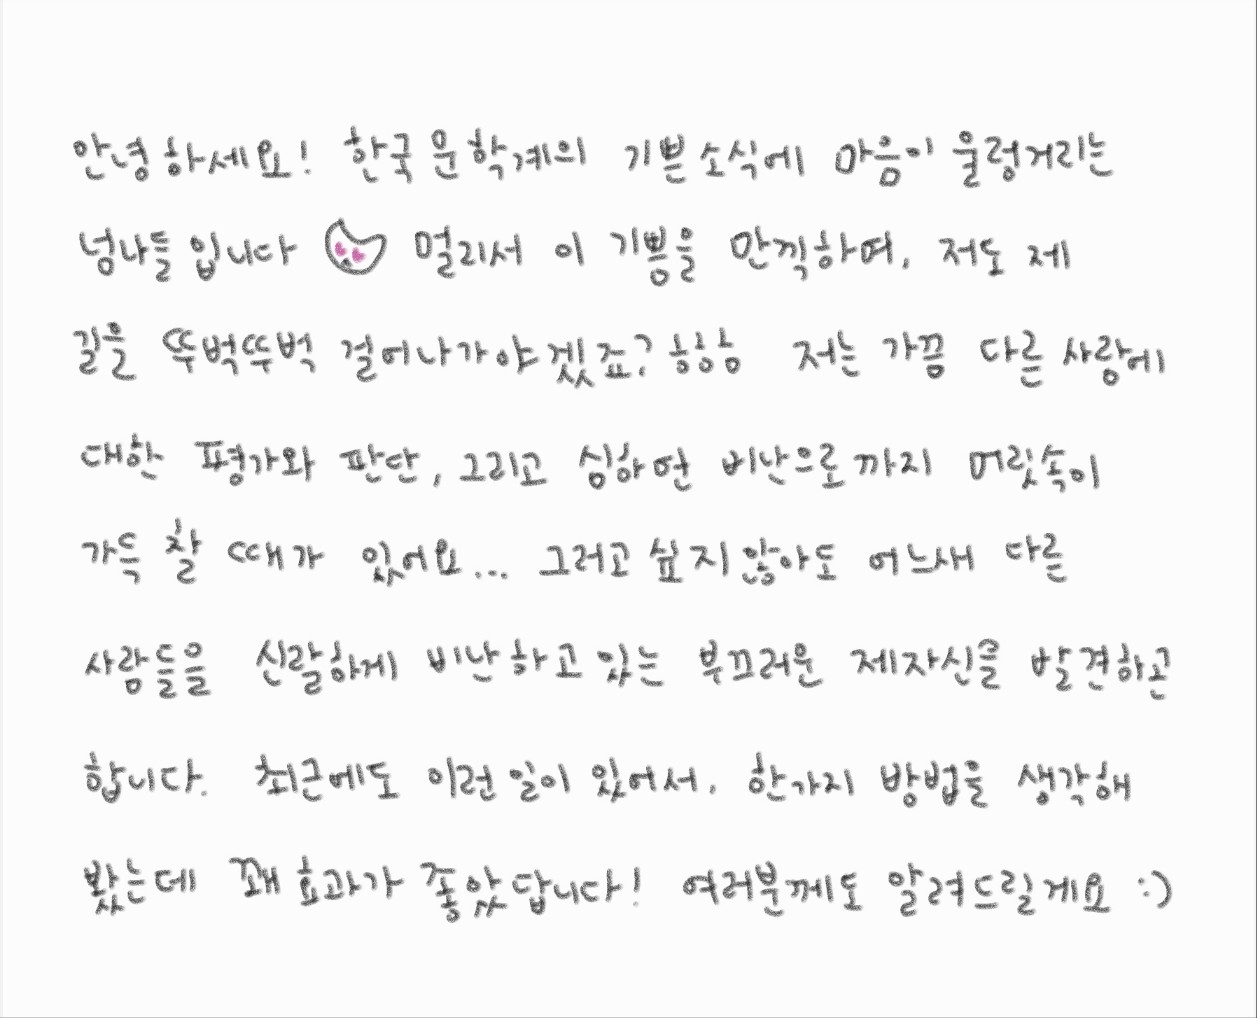 안녕하세요! 한국 문학계의 기쁜 소식에 마음이 울렁거리는
넝나들입니다 멀리서 이 기쁨을 만끽하며, 저도 제
길을 뚜벅뚜벅 걸어나가야겠죠? 하하하 저는 가끔 다른 사람에
대한 평가와 판단, 그리고 심하면 비난으로까지 머릿속이
가득 찰 때가 있어요... 그러고 싶지 않아도 어느새 다른
사람들을 신랄하게 비난하고 있는 부끄러운 제자신을 발견하곤
합니다. 최근에도 이런 일이 있어서, 한가지 방법을 생각해
봤는데 꽤 효과가 좋았답니다! 여러분께도 알려드릴게요 :)